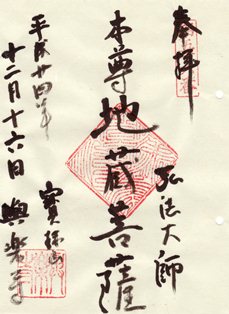 奉拝
弘法大師
本尊地蔵菩薩
平成廿四年
十二月十六日
寳珠山
與楽寺